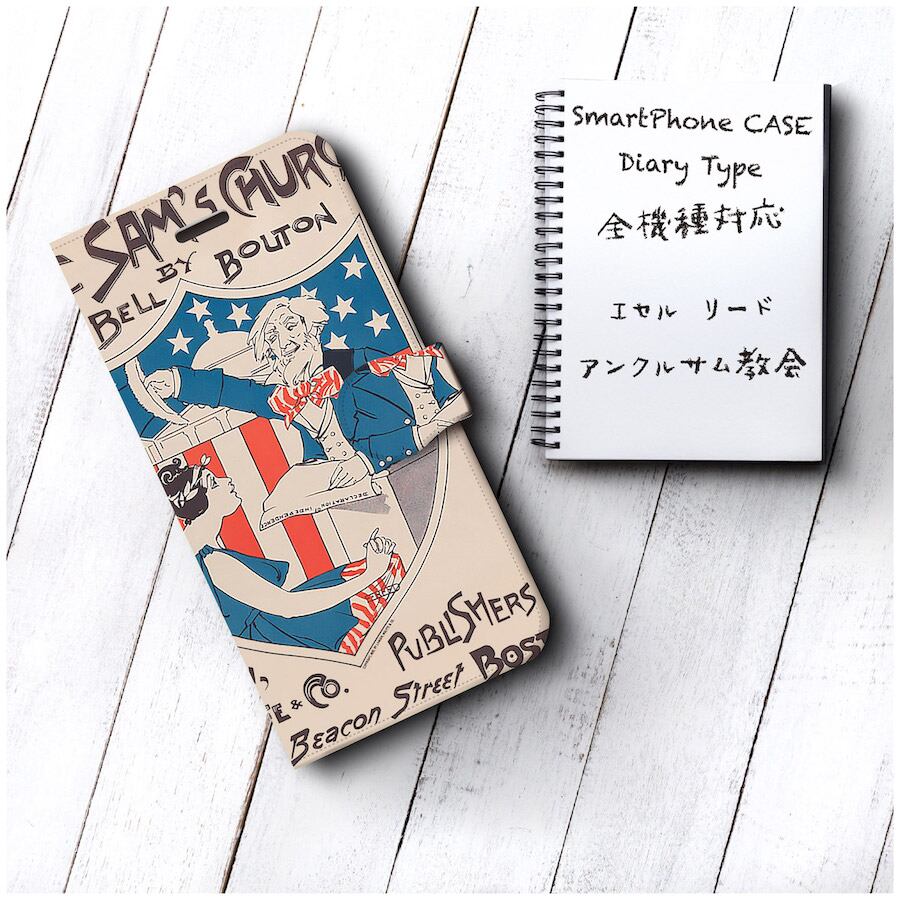 SAM'S CHURC
BY
BELL BOUTON
DECLARATION OF INDEPENDENCE
PUBLISHERS
& CO.
BEACON STREET BOST
SmartPhone CASE
Diary Type
全機種対応
エセル リード
アンクルサム教会